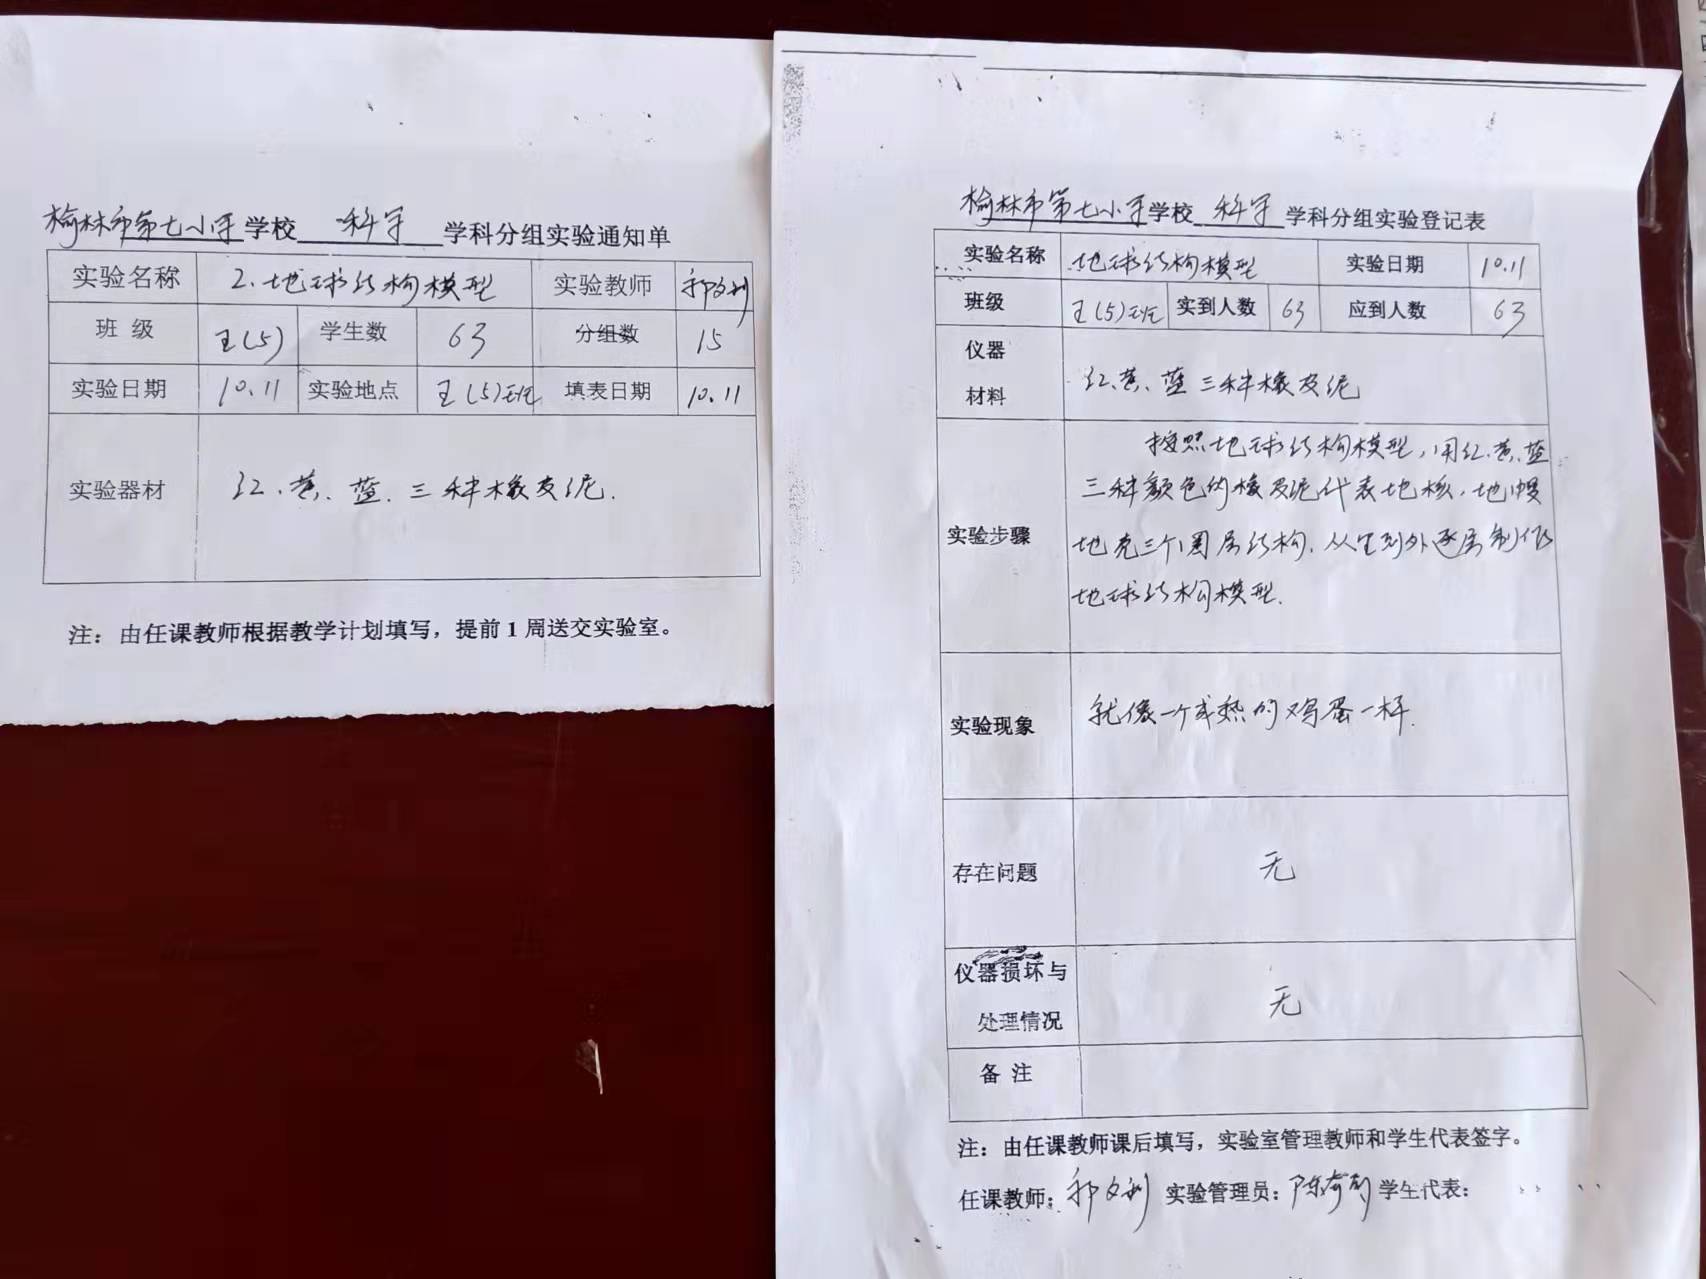 榆林市第七小学学校 科学 学科分组实验通知单
实验名称 2.地球结构模型 实验教师 郭文利
班 级 五(5) 学生数 63 分组数 15
实验日期 10.11 实验地点 五(5)班 填表日期 10.11
实验器材 红、黄、蓝、三种橡皮泥.
注：由任课教师根据教学计划填写，提前1周送交实验室。
榆林市第七小学学校 科学 学科分组实验登记表
实验名称 地球结构模型 实验日期 10.11
班级 五(5)班 实到人数 63 应到人数 63
仪器
材料
红、黄、蓝三种橡皮泥
实验步骤
按照地球结构模型，用红、黄、蓝
三种颜色的橡皮泥代表地核、地幔
地壳三个圈层结构.从里到外逐层制作
地球结构模型.
实验现象 就像一个成熟的鸡蛋一样.
存在问题 无
仪器损坏与
处理情况
无
备 注
注：由任课教师课后填写，实验室管理教师和学生代表签字。
任课教师：郭文利 实验管理员：陈 学生代表：